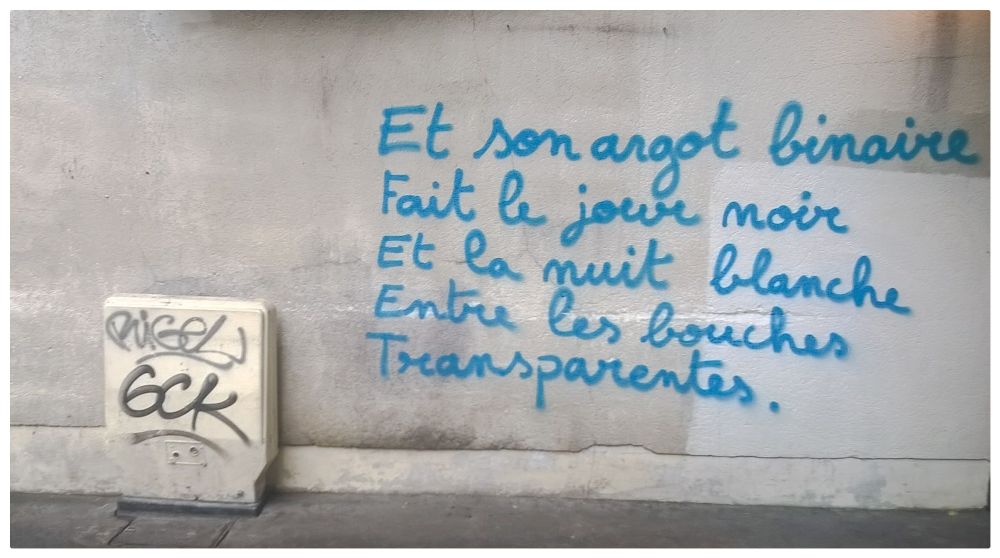 Et son argot binaire
Fait le jour noir
Et la nuit blanche
Entre les bouches
Transparentes.
GCK